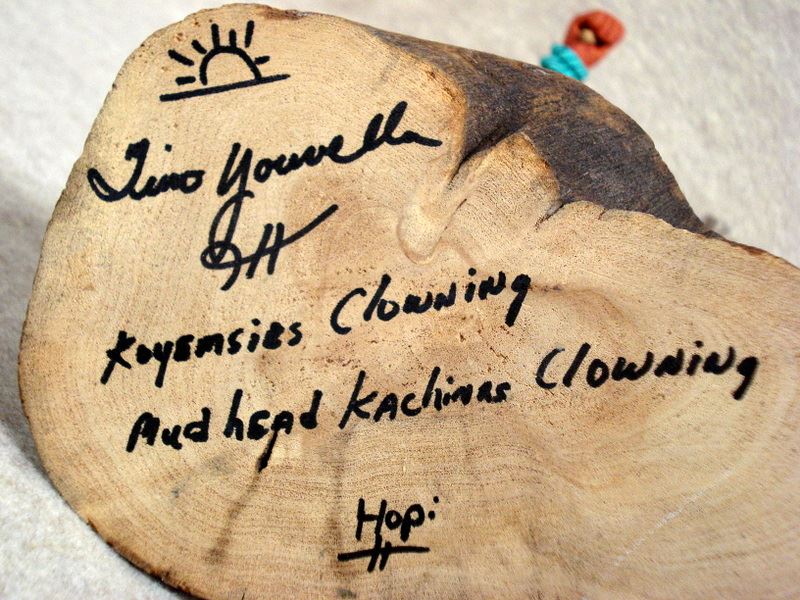 Tino Youvella
Koyemsies Clowning
Mudhead Kachinas Clowning
Hopi